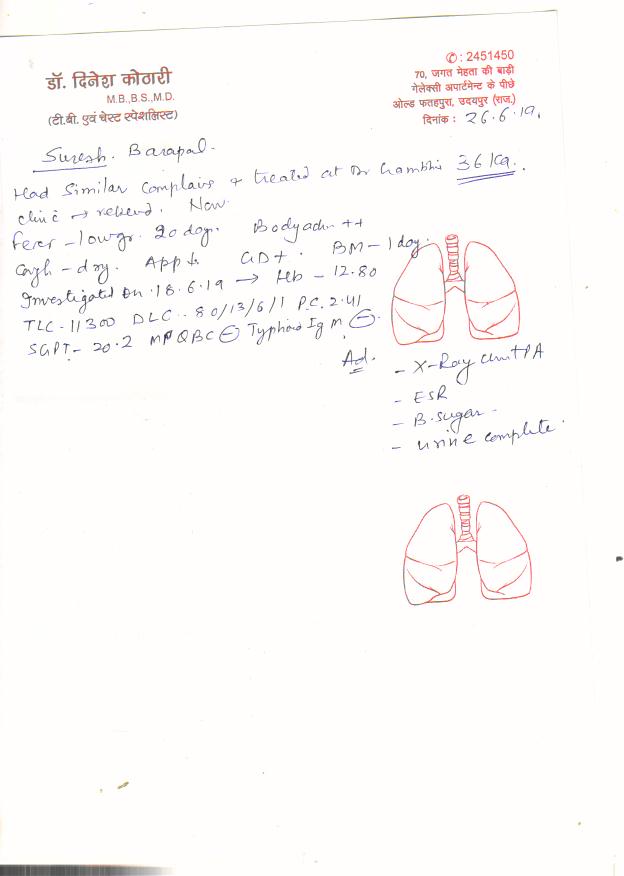 डॉ. दिनेश कोठारी
M.B.,B.S.,M.D.
(टी.बी. एवं चेस्ट स्पेशलिस्ट)
✆: 2451450
70, जगत मेहता की बाड़ी
गेलेक्सी अपार्टमेन्ट के पीछे
ओल्ड फतहपुरा, उदयपुर (राज.)
दिनांक : 26.6.19.
Suresh. Barapal.
Had Similar Complains + treated at Dr 36 Kg.
clinic → Now
Fever - low gr. 20 day. Bodyache ++
Cough - dry. App ↓. GD+. BM - 1 day.
Investigated on .18.6.19 → Hb - 12.80
TLC - 11300 DLC - 80/13/6/1 P.C. 2.41
SGPT - 20.2 MP QBC ⊖ Typhoid IgM ⊖.
Ad.
- X-Ray Chest PA
- ESR
- B. sugar -
- Urine complete.